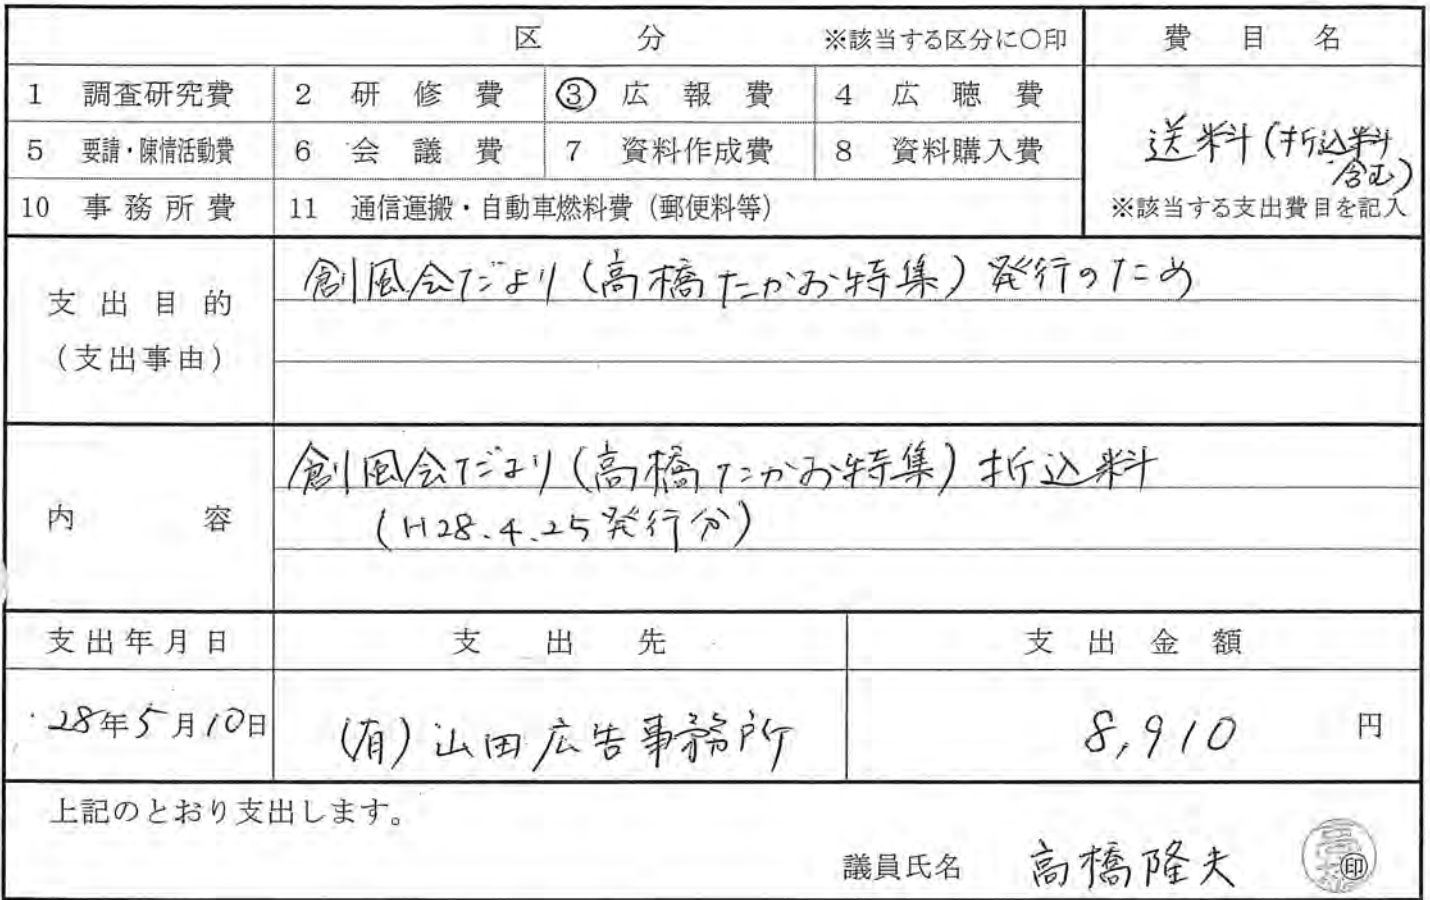 区 分 ※該当する区分に○印 費 目 名
1 調査研究費 2 研 修 費 ③ 広 報 費 4 広 聴 費
5 要請・陳情活動費 6 会 議 費 7 資料作成費 8 資料購入費
10 事務所費 11 通信運搬・自動車燃料費（郵便料等）
送料(折込料
含む)
※該当する支出費目を記入
支出目的
（支出事由）
創風会だより(高橋たかお特集)発行のため
内 容
創風会だより(高橋たかお特集)折込料
(H28.4.25発行分)
支出年月日 支 出 先 支 出 金 額
28年5月10日 (有)山田広告事務所 8,910 円
上記のとおり支出します。
議員氏名 高橋隆夫 ㊞